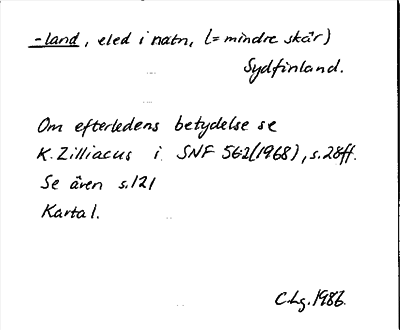 -land, eled i natn, (= mindre skär)
Sydfinland.
Om efterledens betydelse se
K. Zilliacus i SNF 56:2(1968), s.28ff.
Se även s.121
Karta 1.
C.Lg. 1986.